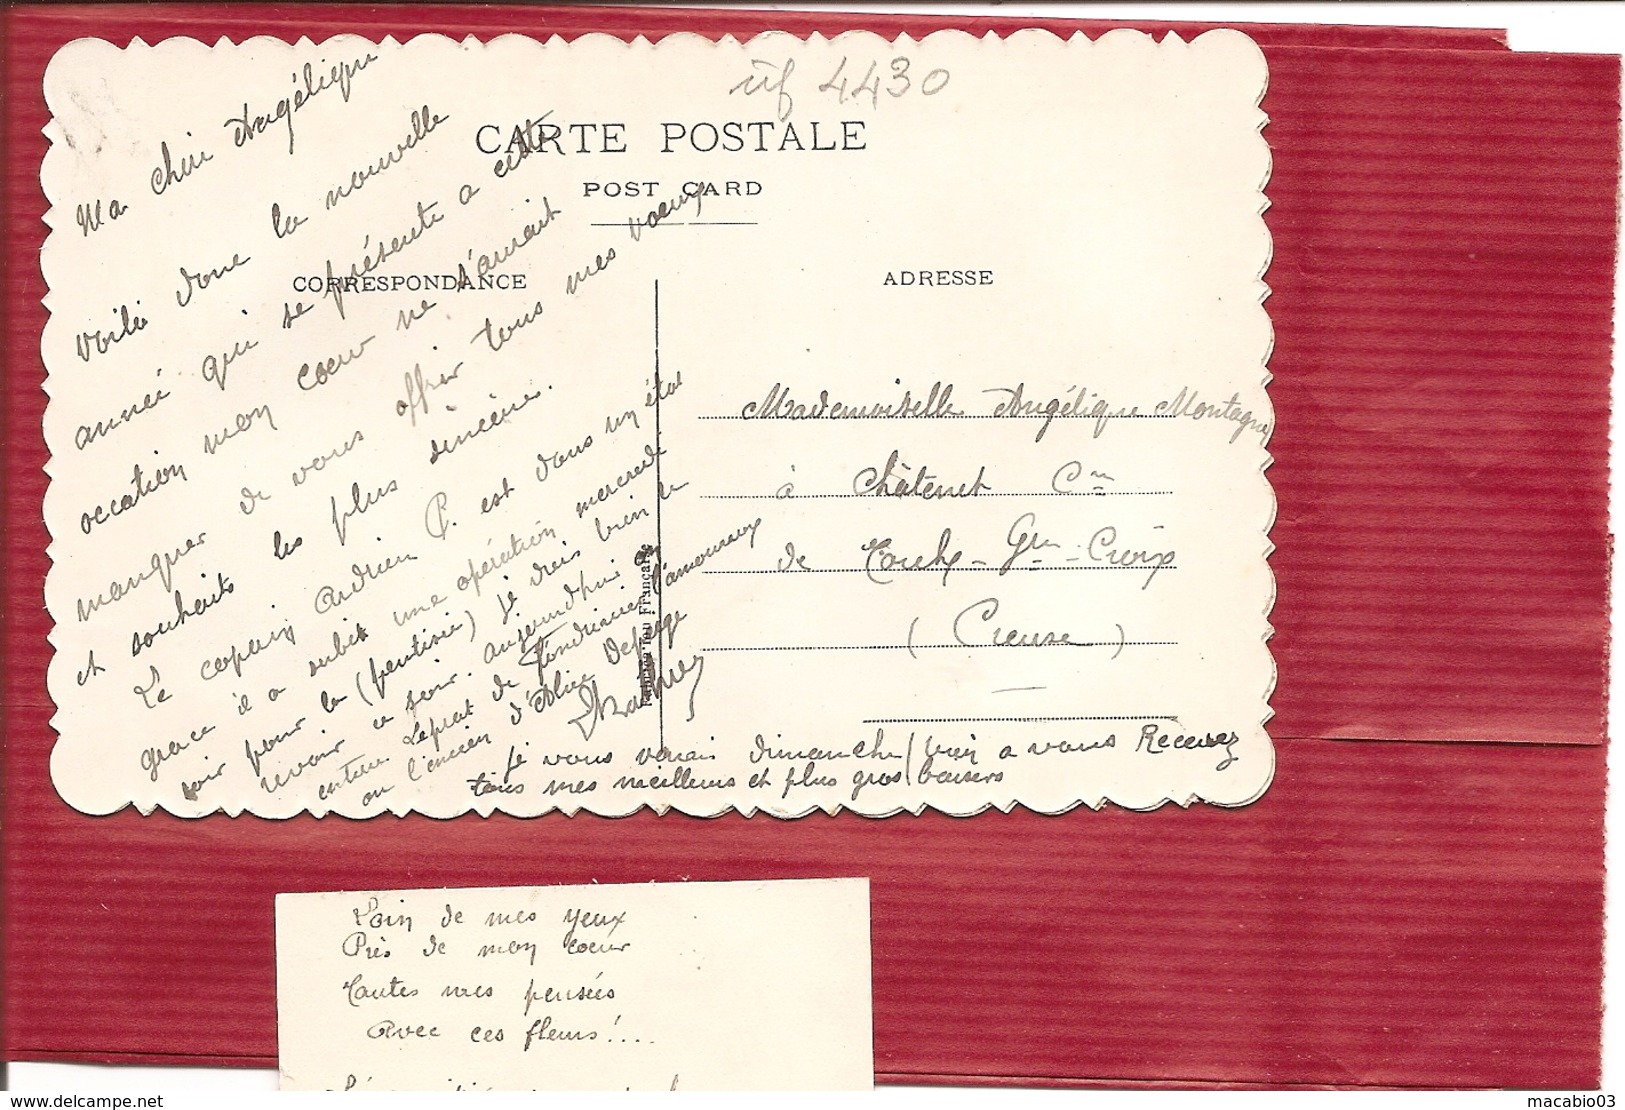 réf 4430
CARTE POSTALE
POST CARD
CORRESPONDANCE
ADRESSE
Ma chèri Angélique
Voilà donc la nouvelle
anneé qui se présente a cette
occation mon coeur ne s'aurait
manquer de vous offrir tous mes vœux
et souhaits les plus sincère.
Le copain Adrien P. est dans un état
grave il a subit une opération mercredi
soir pour la (peutinie) je vais bien le
revoir ce soir. aujourdhui on
enterre Leprat de l'amoureux
ou l'ancien d'Alice Deforge
Je vous verrais dimanche / bien a vous Recevez
tous mes meilleurs et plus gros baisers
Mademoiselle Angélique Montagne
à Châtenet Cne
de Gde-Croix
(Creuse)
Française
Loin de mes yeux
Près de mon coeur
Toutes mes pensées
Avec ces fleurs!...
www.delcampe.net
macabio03